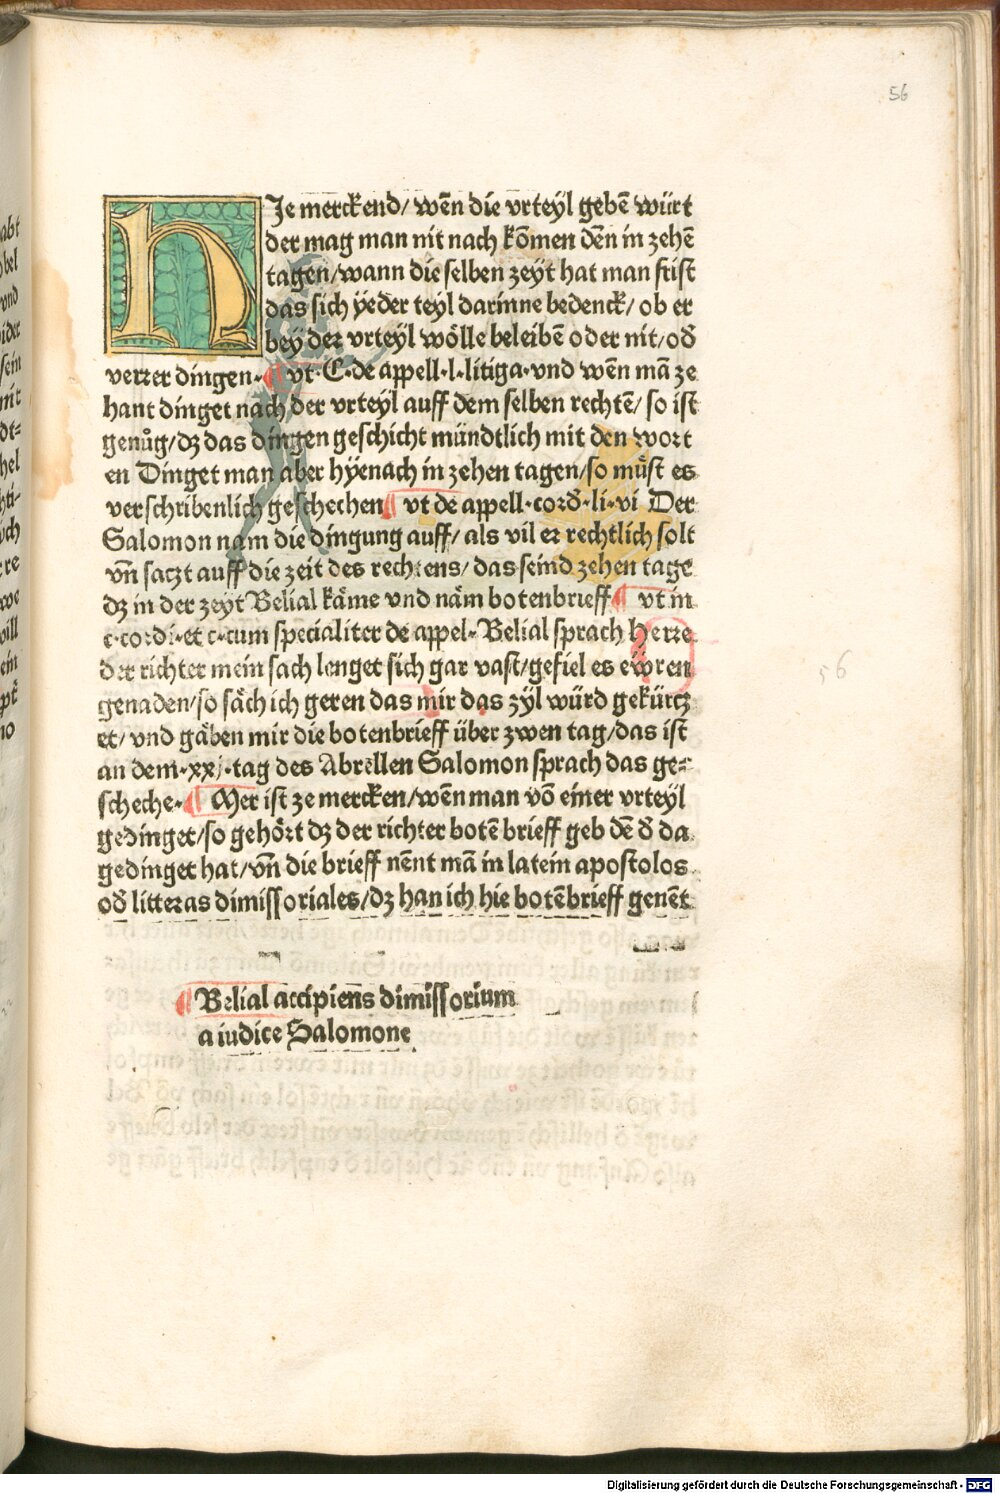 56
HJe merckend/ wen̄ die vrteyl gebē würt
der mag man nit nach kōmen den̄ in zehē
tagen/ wann die selben zeyt hat man frist
das sich yeder teyl darinne bedenck/ ob er
bey der vrteyl wölle beleibē oder nit/ od̄
verrer dingen· ¶ vt·C·de appell·l·litiga·vnd wen̄ mā ze
hant dinget nach der vrteyl auff dem selben rechtē/ so ist
genůg/ dz das dingen geschicht mündtlich mit den wort
en Dinget man aber hyenach in zehen tagen/ so můst es
verschribenlich geschechen ¶ vt de appell·cord̄·li·vi Der
Salomon nam die dingung auff/ als vil er rechtlich solt
vn̄ saczt auff die zeit des rechtens/ das seind zehen tage
dz in der zeyt Belial käme vnd näm botenbrieff ¶ vt in
c·cordi·et c·cum specialiter de appel· Belial sprach Herre
der richter mein sach lenget sich gar vast/ gefiel es ewren
genaden/ so säch ich geren das mir das zyl würd gekürcz
et/ vnd gäben mir die botenbrieff über zwen tag/ das ist
an dem·xxj·tag des Abrellen Salomon sprach das ge⸗
scheche· ¶ Mer ist ze mercken/ wen̄ man vō einer vrteyl
gedinget/ so gehört dz der richter botē brieff geb dē d̄ da
gedinget hat/ vn̄ die brieff nen̄t mā in latein apostolos
od̄ litteras dimissoriales/ dz han ich hie botēbrieff genēt
56
¶ Belial accipiens dimissorium
a iudice Salomone
Digitalisierung gefördert durch die Deutsche Forschungsgemeinschaft - DFG